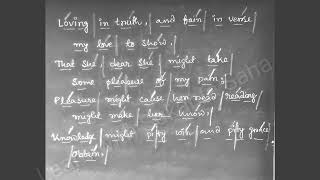 Loving / in truth, / and fain / in verse /
my love / to show, /
That she, / dear she / might take /
some pleasure / of my / pain, /
Pleasure / might cause / her read / reading /
might make / her know. /
Knowledge / might pity win / and pity grace /
/ obtain, /